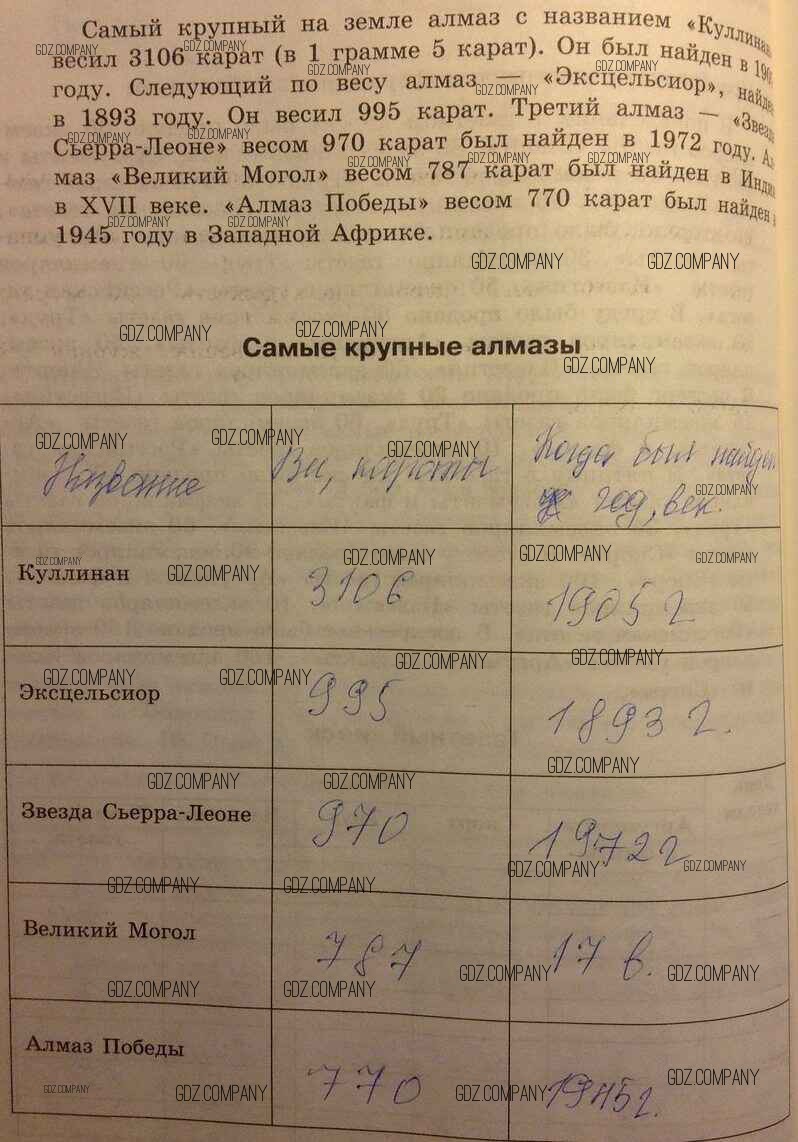 Самый крупный на земле алмаз с названием «Куллинан»
весил 3106 карат (в 1 грамме 5 карат). Он был найден в
году. Следующий по весу алмаз — «Эксцельсиор», найден
в 1893 году. Он весил 995 карат. Третий алмаз — «Звезда
Сьерра-Леоне» весом 970 карат был найден в 1972 году. Ал-
маз «Великий Могол» весом 787 карат был найден в Индии
в XVII веке. «Алмаз Победы» весом 770 карат был найден в
1945 году в Западной Африке.
GDZ.COMPANY
Самые крупные алмазы
Название Вес, караты Когда был найден
год, век.
Куллинан 3106 1905 г
Эксцельсиор 995 1893 г.
Звезда Сьерра-Леоне 970 1972 г
Великий Могол 787 17 в.
Алмаз Победы 770 1945 г.